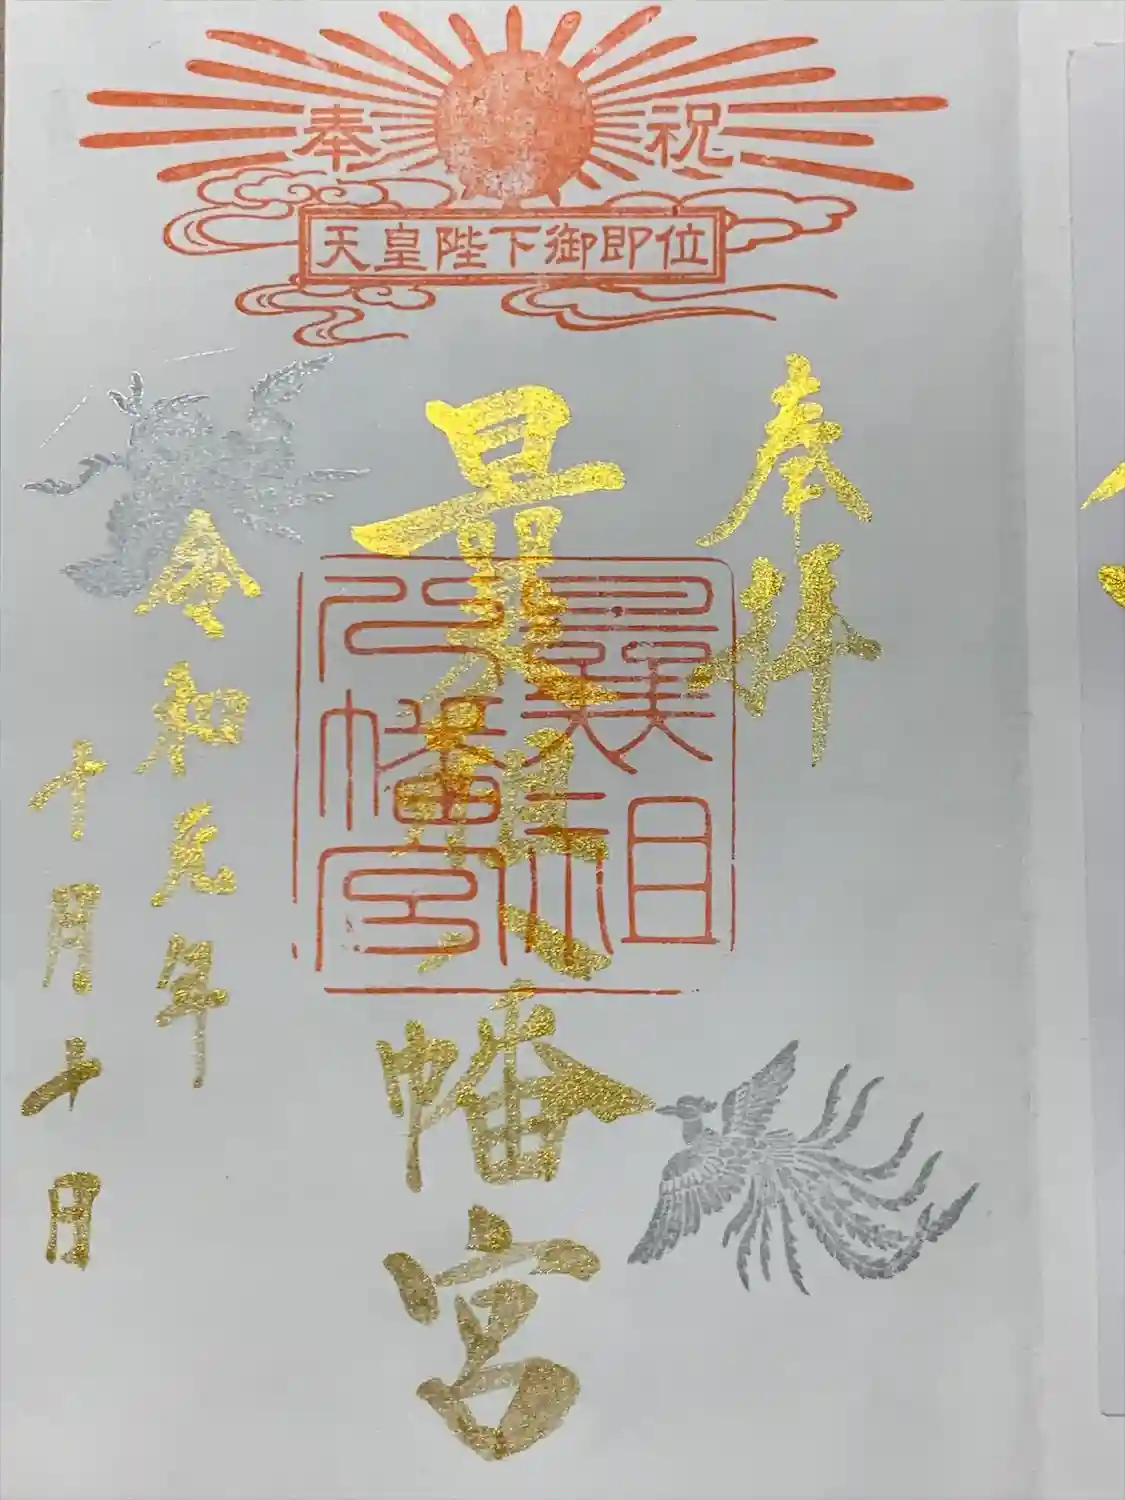 奉祝
天皇陛下御即位
奉拝
曩祖八幡宮
曩祖
八幡宮
令和元年
十月十日